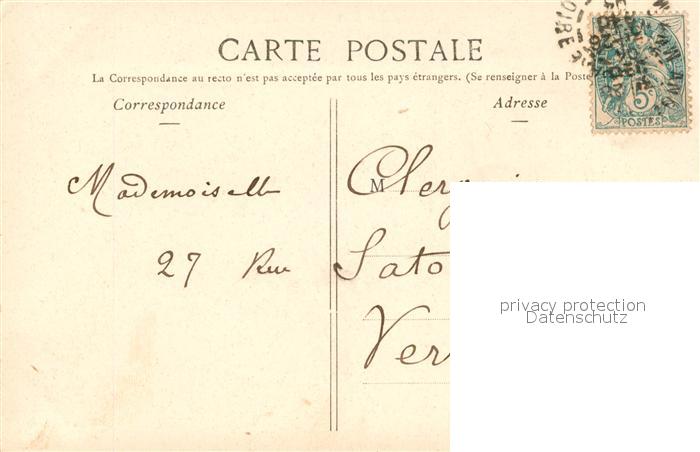 CARTE POSTALE
La Correspondance au recto n'est pas acceptée par tous les pays étrangers. (Se renseigner à la Poste
Correspondance Adresse
5c
POSTES
Mademoiselle M
27 Rue Sato
Ver
privacy protection
Datenschutz